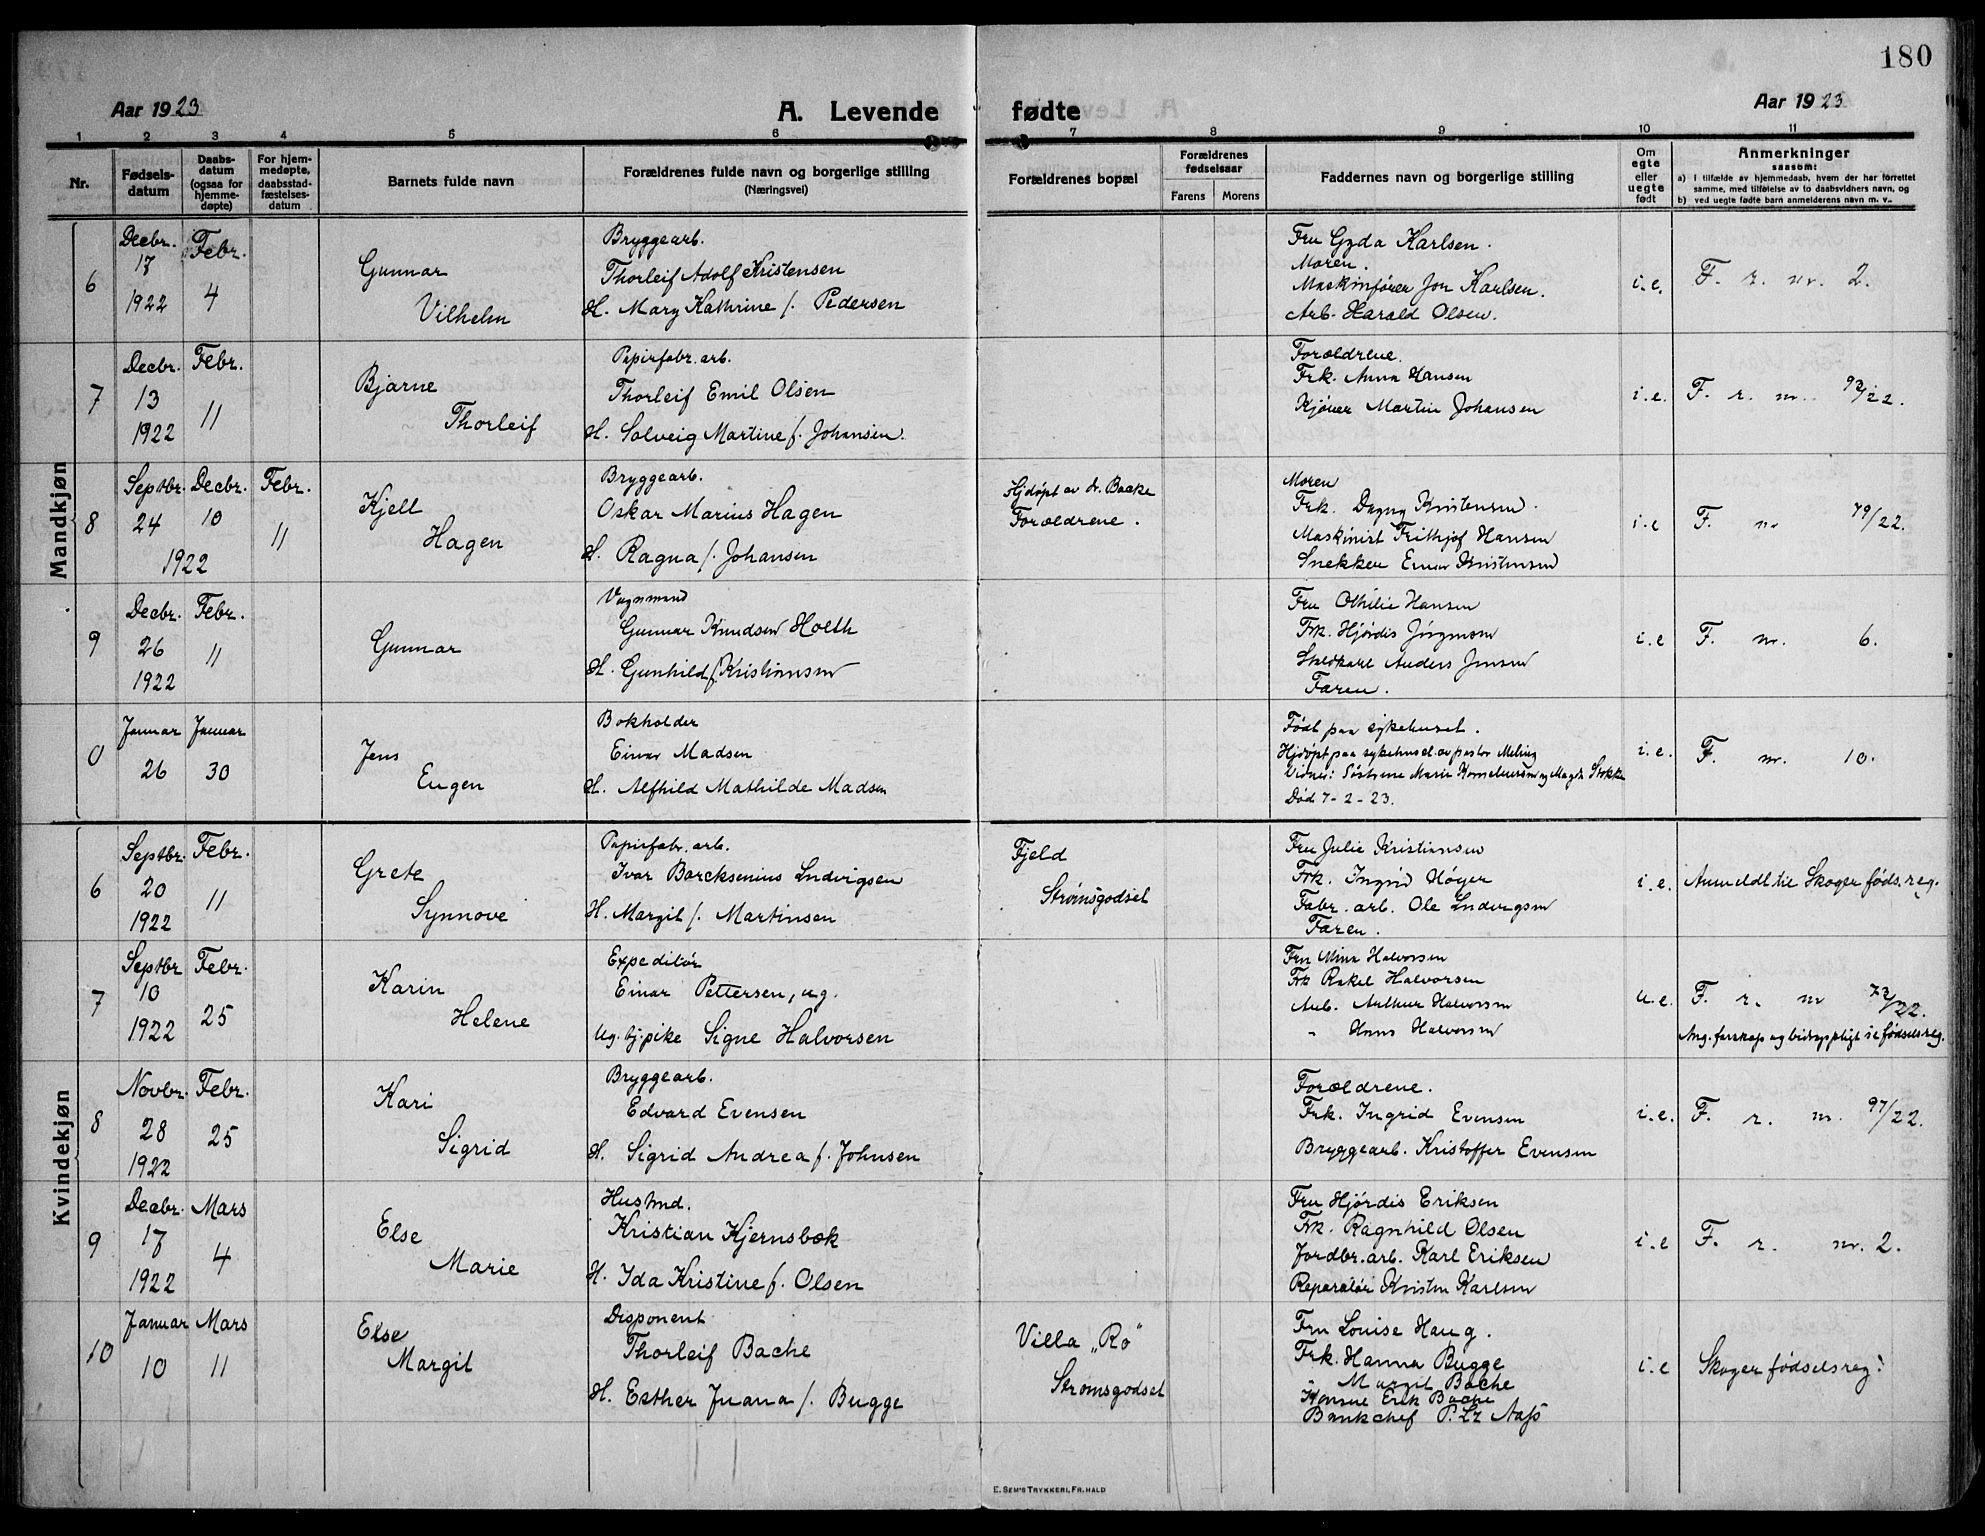 180
Aar 1923
A. Levende fødte
Aar 1923
1 2 3 4 5 6 7 8 9 10 11
Nr.
Fødsels-
datum
Daabs-
datum
(ogsaa for
hjemme-
døpte)
For hjem-
medøpte,
daabsstad-
fæstelses-
datum
Barnets fulde navn
Forældrenes fulde navn og borgerlige stilling
(Næringsvei)
Forældrenes bopæl
Forældrenes
fødselsaar
Farens Morens
Faddernes navn og borgerlige stilling
Om
egte
eller
uegte
født
Anmerkninger
saasom:
a) i tilfælde av hjemmedaab, hvem der har forrettet
samme, med tilføielse av to daabsvidners navn, og
b) ved uegte fødte barn anmelderens navn m. v..
Mandkjøn
6
Decbr.
17
1922
Febr.
4
Gunnar
Vilhelm
Bryggearb.
Thorleif Adolf Kristensen
H. Mary Kathrine f. Pedersen
Fru Gyda Karlsen.
Moren.
Maskinfører Jon Karlsen.
Arb. Harald Olsen.
i.e.
F. r. nr. 2.
7
Decbr.
13
1922
Febr.
11
Bjarne
Thorleif
Papirfabr. arb.
Thorleif Emil Olsen
H. Solveig Martine f. Johansen.
Forældrene.
Frk. Anna Hansen
Kjører Martin Johansen
i.e.
F. r. nr. 93/22.
8
Septbr.
24
Decbr.
10
1922
Febr.
11
Kjell
Hagen
Bryggearb.
Oskar Marius Hagen
H. Ragna f. Johansen
Hjdøpt av dr. Backe
Forældrene.
Moren
Frk. Dagny Kristensen.
Maskinist Frithjof Hansen
Snekker Einar Kristensen
i.e
F. nr 79/22.
9
Decbr.
26
1922
Febr.
11
Gunnar
Vognmand
Gunnar Knudsen Holth
H. Gunhild f. Kristiansen
Fru Othilie Hansen
Frk. Hjørdis Jørgensen
Staldkarl Anders Jensen
Faren.
i.e
F. nr. 6.
0
Januar
26
Januar
30
Jens
Eugen
Bokholder
Einar Madsen
H. Alfhild Mathilde Madsen
Født paa sykehuset.
Hjdøpt paa sykehuset av pastor Meling
Vidner: Søstrene Marie Korneliussen og Magda Stokke
Død 7-2-23.
i.e.
F. nr. 10.
Kvindekjøn
6
Septbr.
20
1922
Febr.
11
Grete
Synnøve
Papirfabr. arb.
Ivar Borcksenius Ludvigsen
H. Margit f. Martinsen
Fjeld
Strømsgodset
Fru Julie Kristiansen
Frk. Ingrid Høyer
Fabr. arb. Ole Ludvigsen
Faren.
i.e.
Anmeldt til Skoger føds.reg.
7
Septbr
10
1922
Febr.
25
Karin
Helene
Expeditør
Einar Pettersen, ug.
Ug. tj.pike Signe Halvorsen
Fru Mina Halvorsen
Frk Rakel Halvorsen
Arb. Arthur Halvorsen
" Hans Halvorsen
u.e.
F. r. nr 73/22.
Ang. farskap og bidragspligt se fødselsreg.
8
Novbr.
28
1922
Febr.
25
Kari
Sigrid
Bryggearb.
Edvard Evensen
H. Sigrid Andrea f. Johnsen
Forældrene.
Frk. Ingrid Evensen
Bryggearb. Kristoffer Evensen
i.e.
F. r. nr. 97/22.
9
Decbr.
17
1922
Mars
4
Else
Marie
Husmd.
Kristian Kjernsbæk
H. Ida Kristine f. Olsen
Fru Hjørdis Eriksen
Frk. Ragnhild Olsen
Jordbr. arb. Karl Eriksen
Reparatør Kristen Karlsen
i.e
F. r. nr. 2.
10
Januar
10
Mars
11
Else
Margit
Disponent
Thorleif Bache
H. Esther Juana f. Bugge
Villa „Ro"
Strømsgodset
Fru Louise Haug.
Frk. Hanna Bugge
" Margit Bache
Konsul Erik Bache
Bankchef P. Aass
i.e
Skoger fødselsreg.
E. SEM'S TRYKKERI, FR.HALD